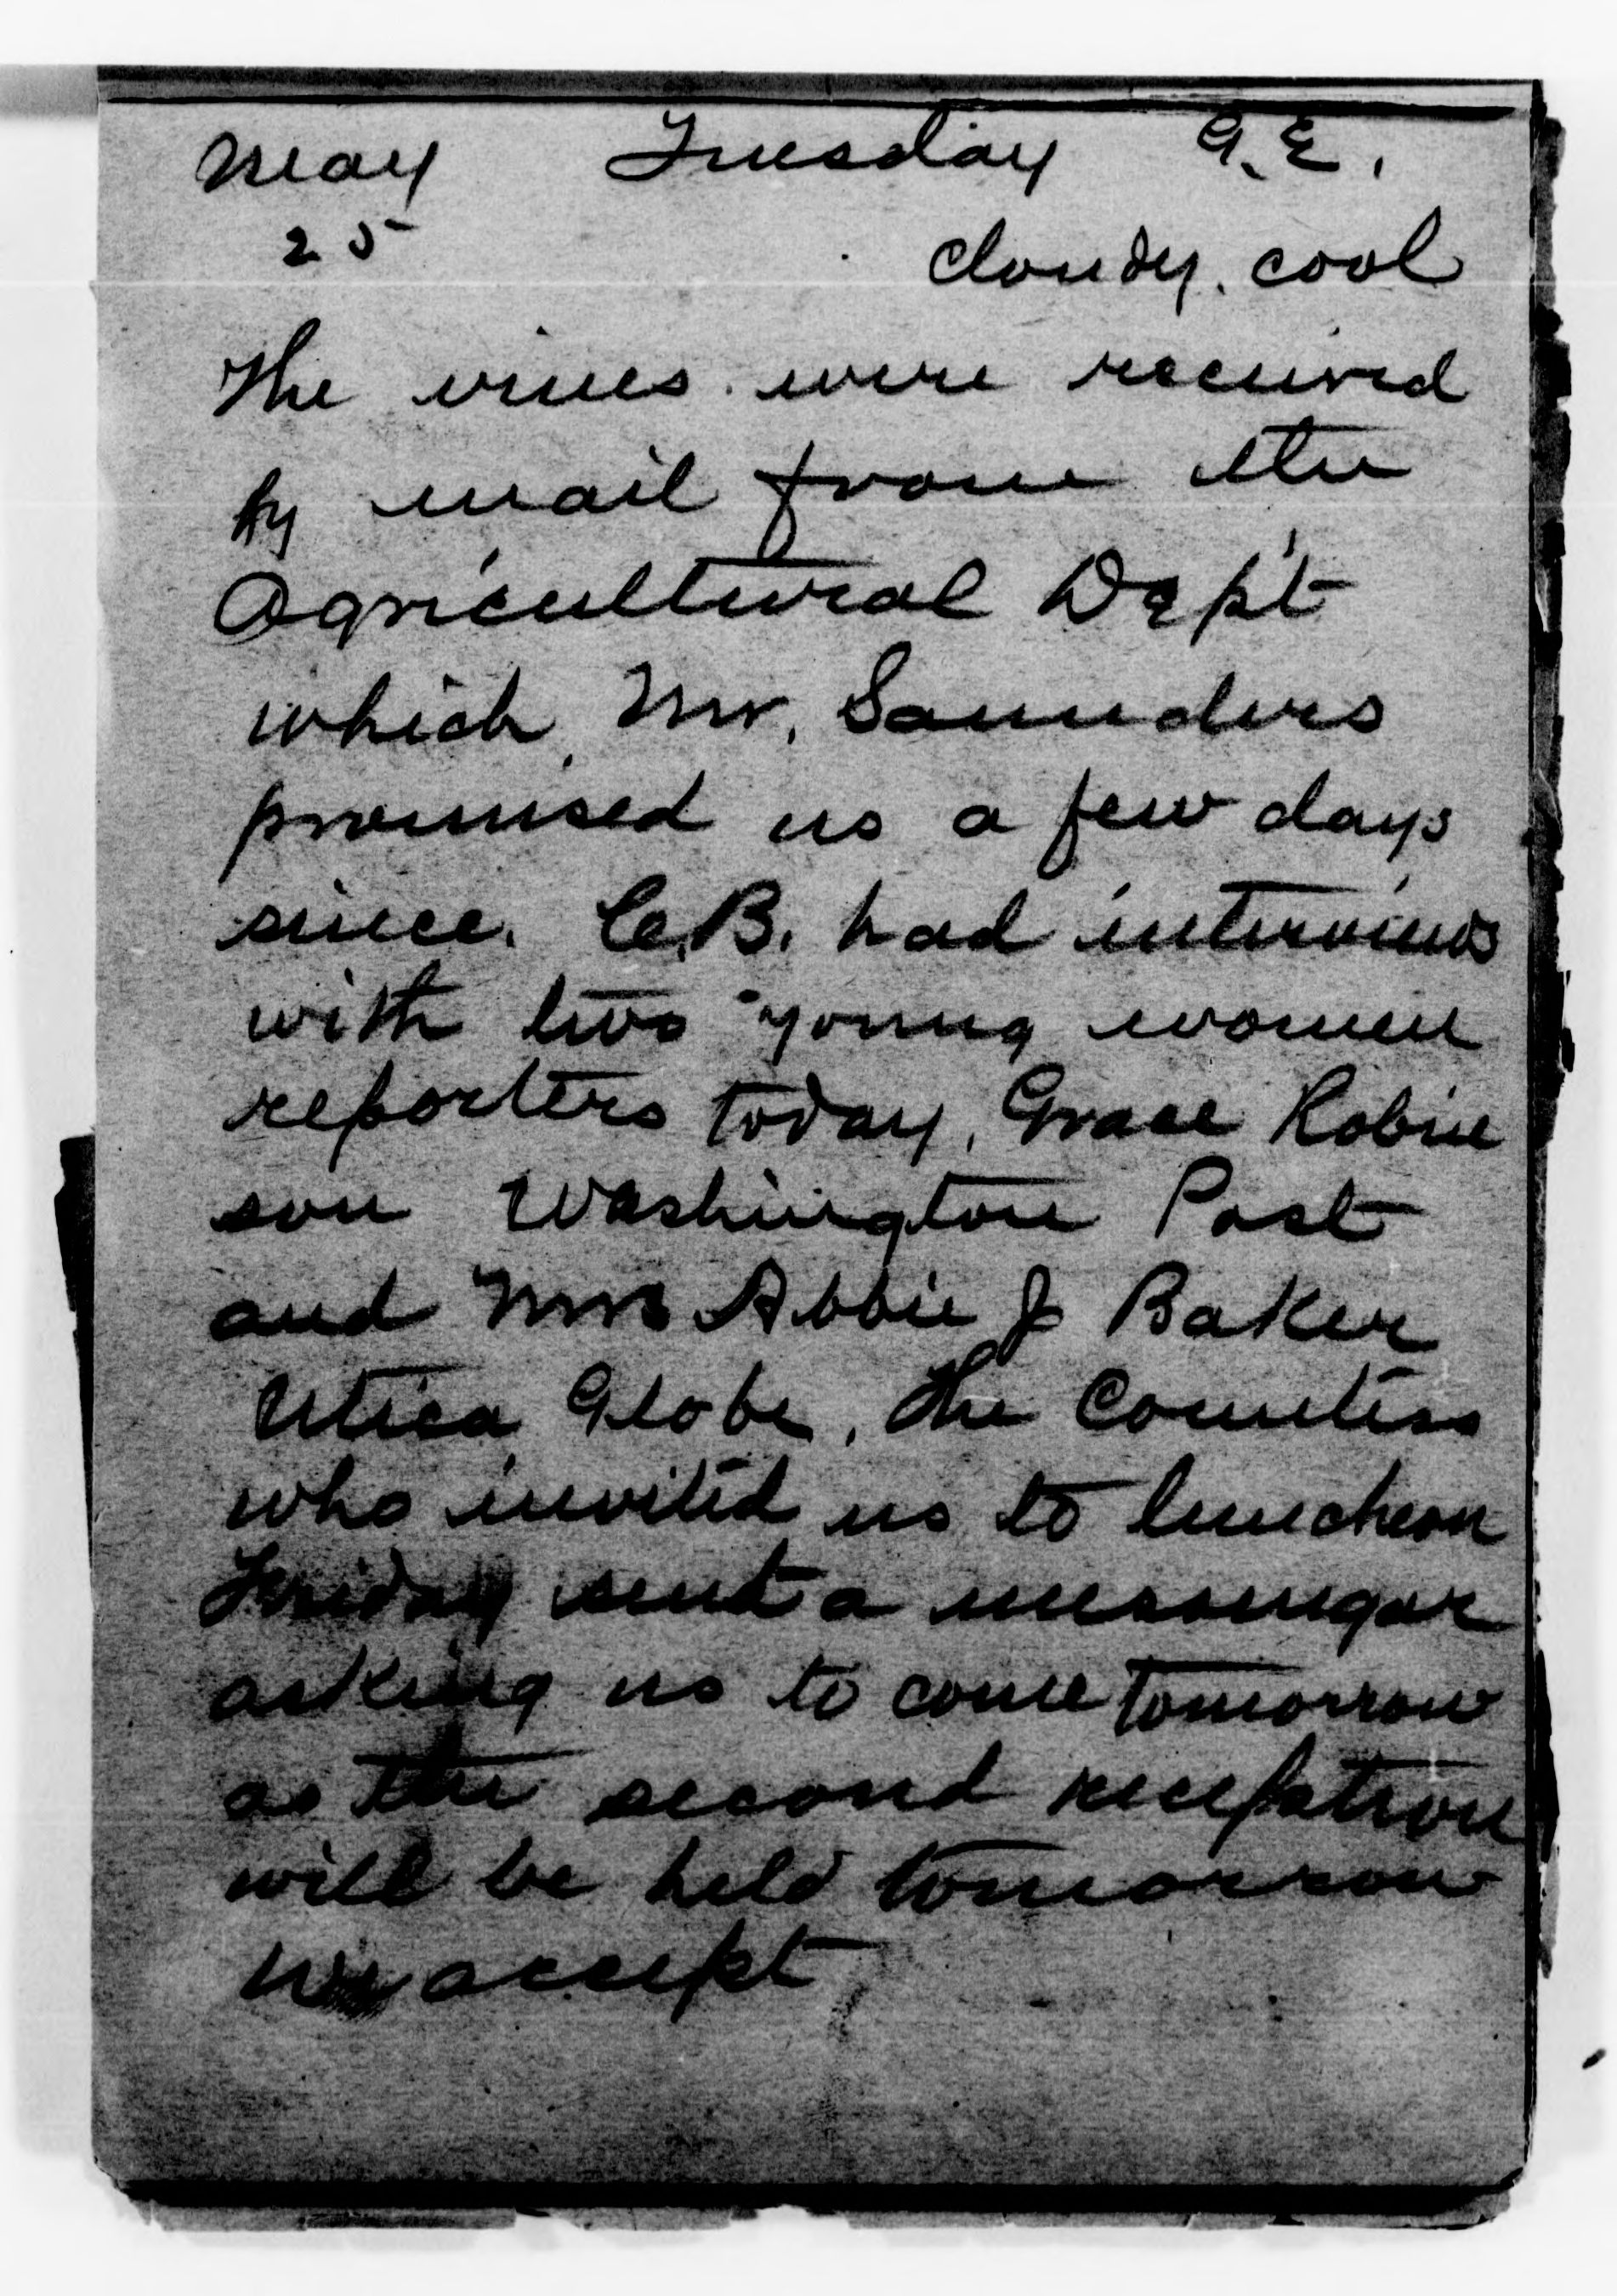 May Tuesday G.E.
25
cloudy. cool
The vines were received
by mail from the
Agricultural Dep't
which Mr. Saunders
promised us a few days
since. C.B. had interviews
with two young women
reporters today, Grace Robin
son Washington Post
and Mrs Abbie J Baker
Utica Globe, The Countess
who invited us to luncheon
Friday sent a messengar
asking us to come tomorrow
as the second reception
will be held tomorrow
we accept